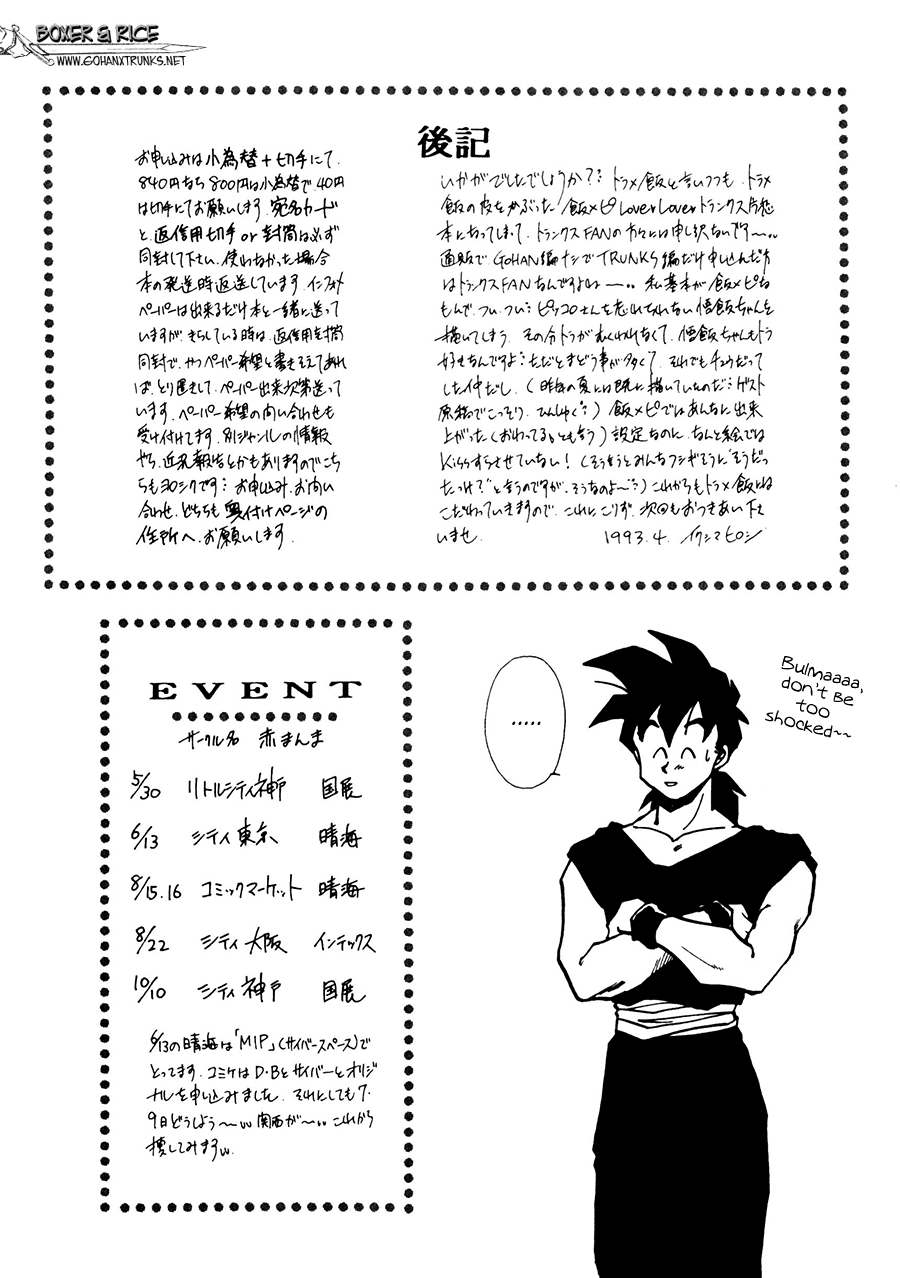 BOXER & RICE
WWW.GOHANXTRUNKS.NET
後記
いかがでしたでしょうか?? トラメ/飯と言いつつも、トラメ
飯の皮をかぶった/飯メピLoveLoveトランクス片想
本になってしまって、トランクスFANの方々には申し訳ないです~…
通販でGOHAN編ナシでTRUNKS編だけ申し込んだ方
はトランクスFANなんですよねい~… 私基本が飯メピな
もんで、つい、つい: ピッコロさんを忘れられない悟飯ちゃんを
描いてしまう。その分トラがむくわれなくて、悟飯ちゃんもトラ
好きなんですよ: ただとまどう事が多くて、それでもチュウだって
した仲だし、(昨年の夏には既に描いていたのだ: ゲスト
原稿でこっそり、ひんしゅく:) 飯メピではあんなに出来
上がった(おわってるとも言う)設定なのに、なんと絵では
Kissすらさせていない! (そう言うとみんなフシギそうに"そうだっ
たっけ?"と言うのですが、そうなのよ~":) これからもトラメ飯には
こだわっていきますので、これにこりず、次回もおつきあい下さ
いませ。 1993.4.
お申し込みは小為替+切手にて。
840円なら800円は小為替で、40円
は切手にてお願いします。宛名カード
と、返信用切手or封筒は必ず
同封して下さい。使わなかった場合
本の発送時返送しています。インフォメ
ペーパーは出来るだけ本と一緒に送って
いますが、きらしている時は、返信用封筒
同封で、かつペーパー希望と書きそえてあれ
ば、とり置きして、ペーパー出来次第送って
います。ペーパー希望の問い合わせも
受け付けてます。別ジャンルの情報
やら、近況報告とかもありますのでこち
らもヨロシクです: お申込み、お問い
合わせ、どちらも奥付けページの
住所へ、お願いします。
EVENT
サークル名 赤まんま
5/30 リトルシティ神戸 国展
6/13 シティ東京 晴海
8/15.16 コミックマーケット 晴海
8/22 シティ大阪 インテックス
10/10 シティ神戸 国展
6/13の晴海は「MIP」(サイバースペース)で
とってます。コミケはD・Bとサイバーとオリジ
ナルを申し込みました。それにしても7・
9日どうしよう~ 関西が~ これから
捜してみます。
.....
Bulmaaaa,
don't be
too
shocked~~